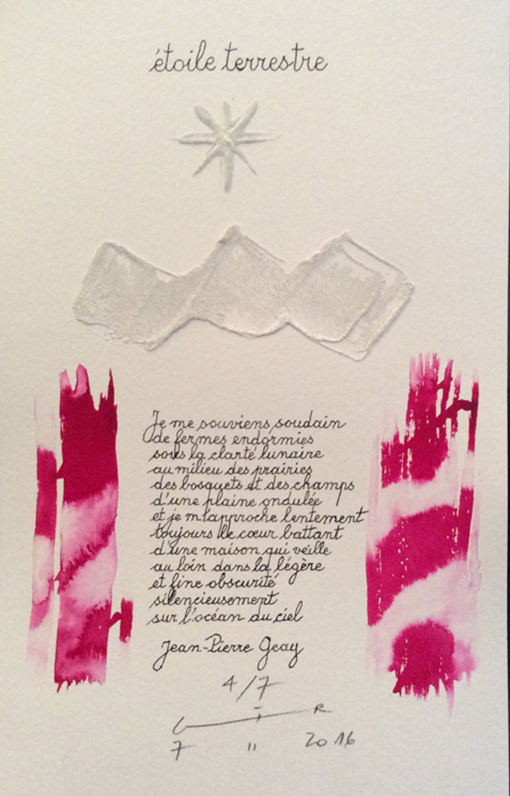 étoile terrestre
Je me souviens soudain
de fermes endormies
sous la clarté lunaire
au milieu des prairies
des bosquets et des champs
d'une plaine ondulée
et je m'approche lentement
toujours le cœur battant
d'une maison qui veille
au loin dans la légère
et fine obscurité
silencieusement
sur l'océan du ciel
Jean-Pierre Geay
4/7
7 11 2016